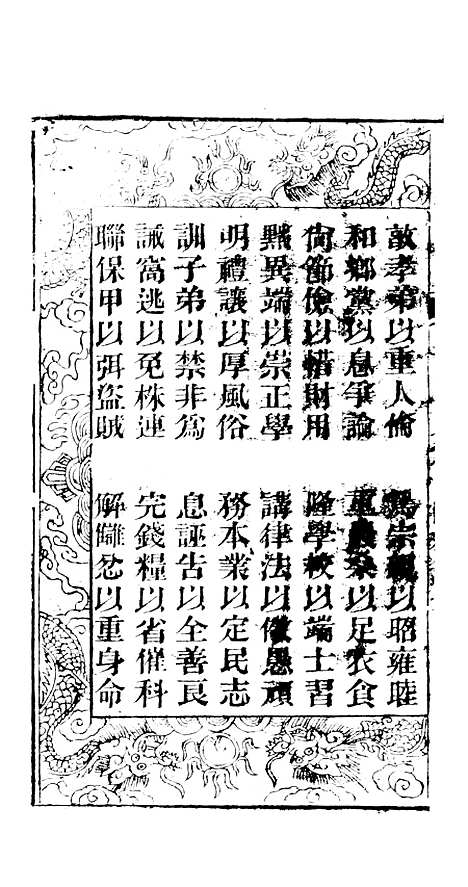 敦孝弟以重人倫　篤宗族以昭雍睦
和鄉黨以息爭論　重農桑以足衣食
尙節儉以惜財用　隆學校以端士習
黜異端以崇正學　講律法以儆愚頑
明禮讓以厚風俗　務本業以定民志
訓子弟以禁非爲　息誣告以全善良
誡窩逃以免株連　完錢糧以省催科
聯保甲以弭盜賊　解讎忿以重身命